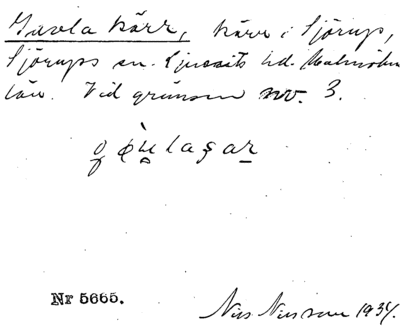 Gavla kärr, kärr i Sjörup,
Sjörups sn. Ljunits hd. Malmöhus
län. Vid gränsen mv. 3.
Nr 5665.
Nils Nilsson 1934.